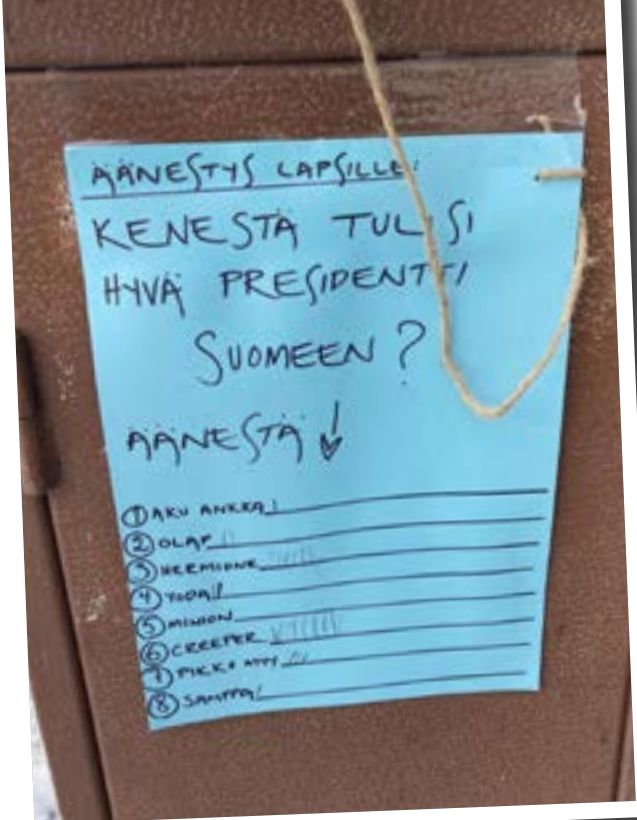 ÄÄNESTYS LAPSILLE:
KENESTÄ TULISI
HYVÄ PRESIDENTTI
SUOMEEN?
ÄÄNESTÄ ↓
① AKU ANKKA
② OLAF
③ HERMIONE
④ YODA
⑤ MINION
⑥ CREEPER
⑦ PIKKU MYY
⑧